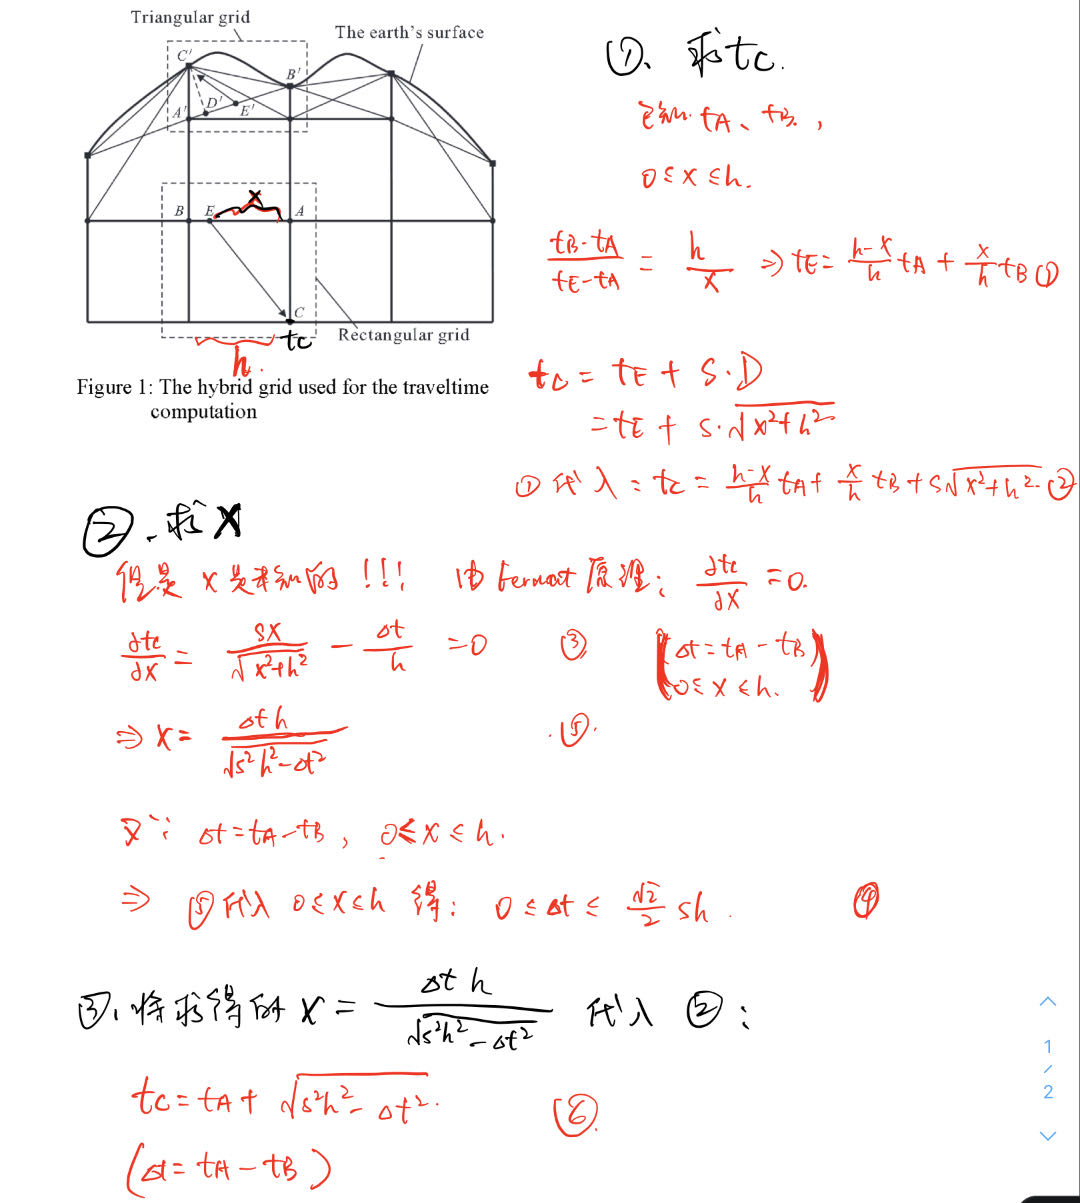 Triangular grid
The earth's surface
C'
B'
A'
D'
E'
B
E
x
A
C
tc
h.
Rectangular grid
Figure 1: The hybrid grid used for the traveltime
computation
①、求tc.
已知 tA、tB,
0≤x≤h.
(tB-tA)/(tE-tA) = h/x ⇒ tE = (h-x)/h tA + x/h tB ①
tc = tE + S·D
= tE + S·√(x²+h²)
①代入: tc = (h-x)/h tA + x/h tB + S√(x²+h²) ②
②、求x
但是 x是未知的!!! 由 Fermat 原理: ∂tc/∂x = 0.
∂tc/∂x = Sx/√(x²+h²) - Δt/h = 0 ③ (Δt = tA - tB
0≤x≤h.)
⇒ x = Δt h/√(s²h²-Δt²) ⑤.
又∵ Δt = tA - tB, 0≤x≤h.
⇒ ⑤代入 0≤x≤h 得: 0≤Δt≤ √2/2 sh. ④
③、将求得的 x = Δt h/√(s²h²-Δt²) 代入 ②:
tc = tA + √(s²h²-Δt²). ⑥.
(Δt = tA - tB)
1
/
2